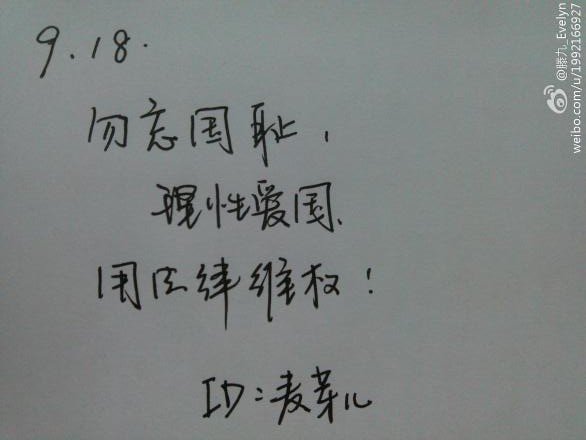 9.18.
勿忘国耻，
理性爱国、
用法律维权！
ID：麦芽儿
@滕九_Evelyn
weibo.com/u/1992166927